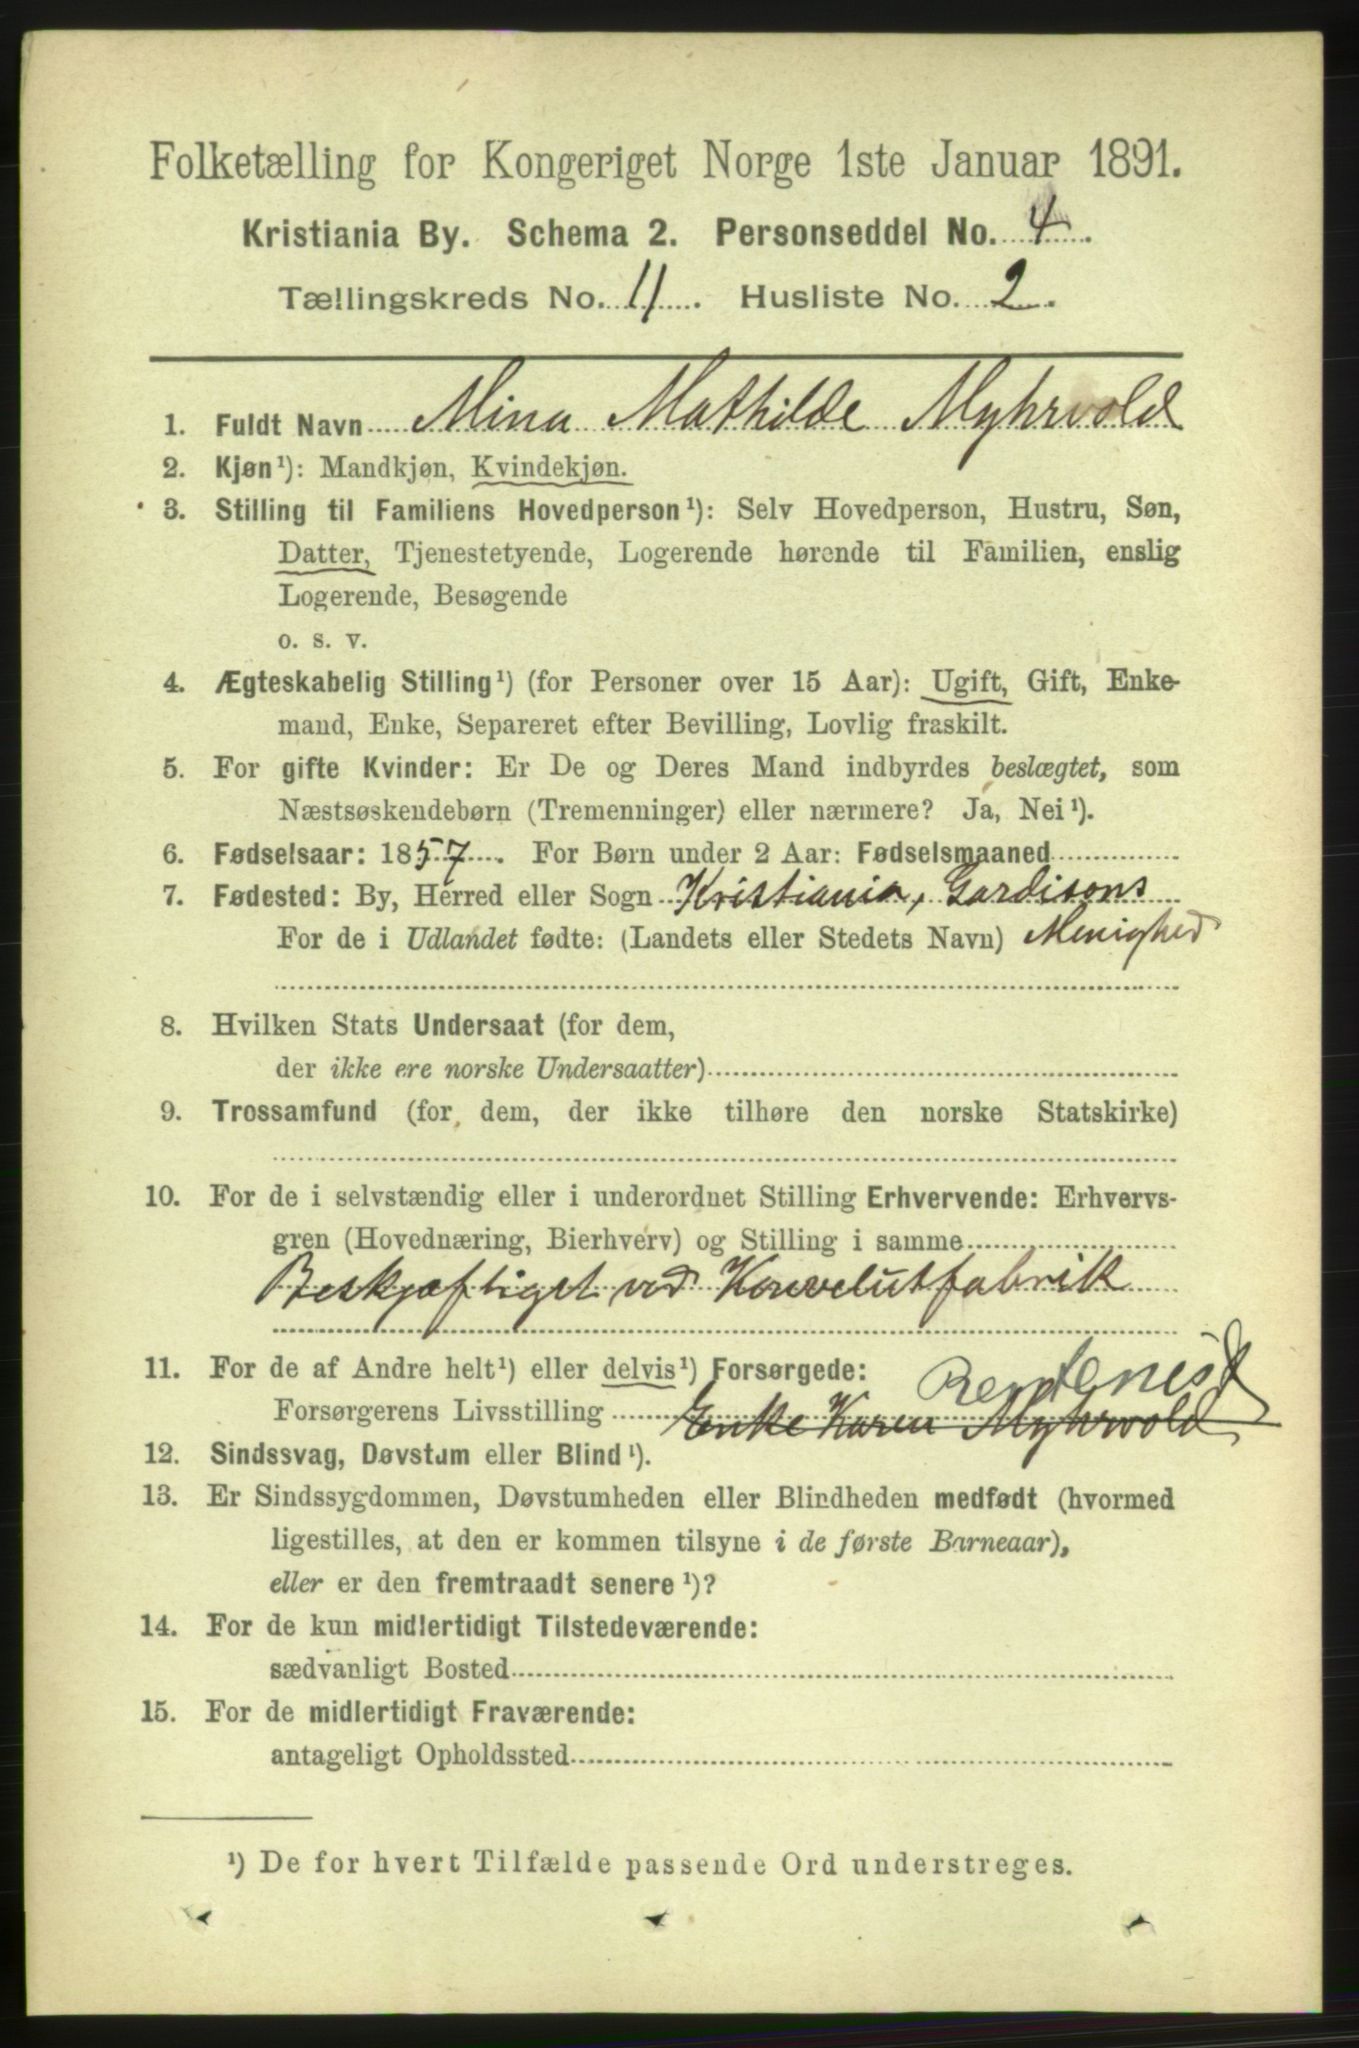 Folketælling for Kongeriget Norge 1ste Januar 1891.
Kristiania By. Schema 2. Personseddel No. 4.
Tællingskreds No. 11. Husliste No. 2.
1. Fuldt Navn Mina Mathilde Myhrvold
2. Kjøn¹): Mandkjøn, Kvindekjøn.
3. Stilling til Familiens Hovedperson¹): Selv Hovedperson, Hustru, Søn,
Datter, Tjenestetyende, Logerende hørende til Familien, enslig
Logerende, Besøgende
o. s. v.
4. Ægteskabelig Stilling¹) (for Personer over 15 Aar): Ugift, Gift, Enke-
mand, Enke, Separeret efter Bevilling, Lovlig fraskilt.
5. For gifte Kvinder: Er De og Deres Mand indbyrdes beslægtet, som
Næstsøskendebørn (Tremenninger) eller nærmere? Ja, Nei¹).
6. Fødselsaar: 1857. For Børn under 2 Aar: Fødselsmaaned
7. Fødested: By, Herred eller Sogn Kristiania, Gardisons
For de i Udlandet fødte: (Landets eller Stedets Navn) Menighed
8. Hvilken Stats Undersaat (for dem,
der ikke ere norske Undersaatter)
9. Trossamfund (for dem, der ikke tilhøre den norske Statskirke)
10. For de i selvstændig eller i underordnet Stilling Erhvervende: Erhvervs-
gren (Hovednæring, Bierhverv) og Stilling i samme
Beskjæftiget ved Konvelutfabrik
11. For de af Andre helt¹) eller delvis¹) Forsørgede: Rentenist
Forsørgerens Livsstilling Enke Karen Myhrvold
12. Sindssvag, Døvstum eller Blind¹).
13. Er Sindssygdommen, Døvstumheden eller Blindheden medfødt (hvormed
ligestilles, at den er kommen tilsyne i de første Barneaar),
eller er den fremtraadt senere¹)?
14. For de kun midlertidigt Tilstedeværende:
sædvanligt Bosted
15. For de midlertidigt Fraværende:
antageligt Opholdssted
¹) De for hvert Tilfælde passende Ord understreges.